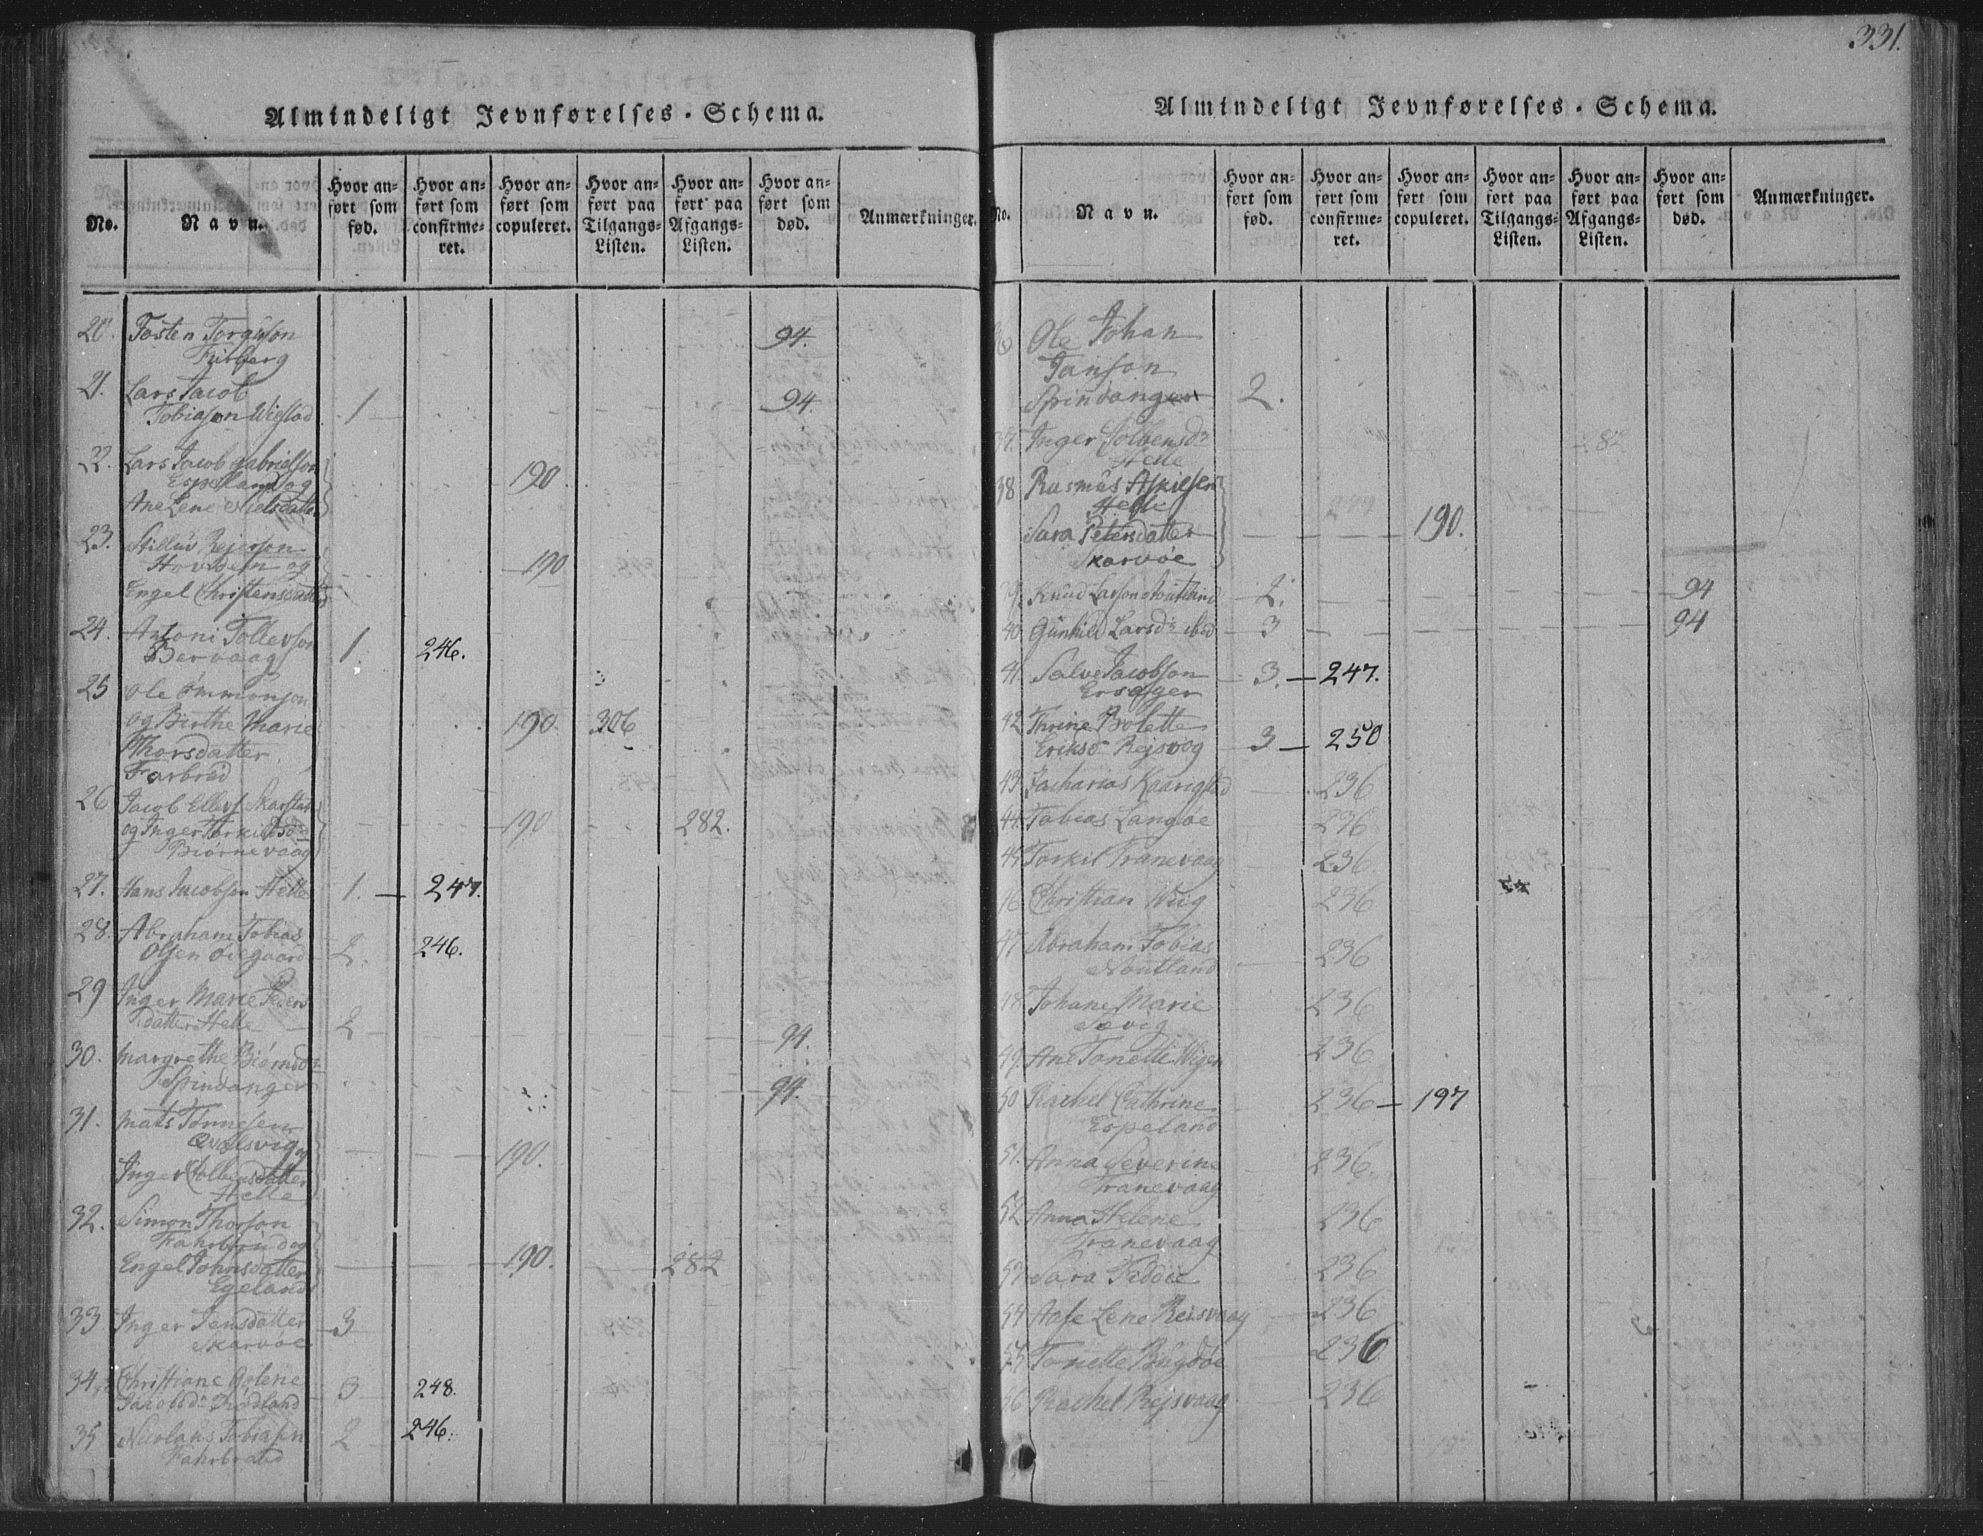 331.
Almindeligt Jevnførelses-Schema.
No. Navn. Hvor anført som fød. Hvor anført som confirmeret. Hvor anført som copuleret. Hvor anført paa Tilgangs-Listen. Hvor anført paa Afgangs-Listen. Hvor anført som død. Anmærkninger.
20. Tosten 94.
21. Lars Jacob
Tobiason Wigstad 1 94
22. Lars Jacob Gabrielson
Espeland og 190
Ane Lene Nielsdatter
23. Stilluv Rejerson
Hovden og 190
Engel Christensdatter
24. Antoni Tollevson
Bervaag 1. 246.
25 Ole Ommonson
og Birthe Marie 190 306
Thorsdatter
Farbrød
26 Jacob Ellevs. Skarstad
og Inger Torkildsdr 190 282.
Biørnevaag
27. Hans Jacobsen Helle 1. 247.
28. Abraham Tobias
Olsen Øiegaard 2. 246.
29 Inger Marie Peders
datter Helle 2 94.
30. Margrethe Biørnsdr
Spindanger 94.
31. Mats Tønnesen
Qvalsvig og 190.
Inger Colbensdatter
Helle
32. Simon Thorson
Fahrbrød og
Engel Johnsdatter 190. 282
Egeland
33 Inger Jensdatter 3
Skarvøe
34. Christiane Golene
Jacobsdr Rødland 3 248.
35 Nicolaus Tobiasen 2 246.
Fahrbrød
Almindeligt Jevnførelses-Schema.
No. Navn. Hvor anført som fød. Hvor anført som confirmeret. Hvor anført som copuleret. Hvor anført paa Tilgangs-Listen. Hvor anført paa Afgangs-Listen. Hvor anført som død. Anmærkninger.
Ole Johan
Janson
Spindanger 2.
37. Inger Colbensdr 82
Helle
38 Rasmus Askiesen
Helle 249
Sara Petersdatter 190.
Skarvøe
39. Knud Larson Noutland 2. 94
40 Gunhild Larsdr ibid 3 94
41. Salve Jacobson 3. 247.
42 Thrine Bolette
Eriksdr Rejsvog 3 250
43. Zacharias Kaarigstad 236
44. Tobias Langøe 236
45 Torkil Tranevaag 236.
46 Christian Wiig 236
47 Abraham Tobias
Noutland 236
48 Johane Marie 236
Søvig
49. Ane Tonette Wigen 236
50 Rachel Cathrine 236 197
Espeland
51. Anna Severine 236.
Tranevaag
52 Anna Helene 236
Tranevaag
53 Sara 236
54 Aase Lene Rejsvaag 236
55 Tonette Bugdøe 236
56 Rachel Rejsvaag 236